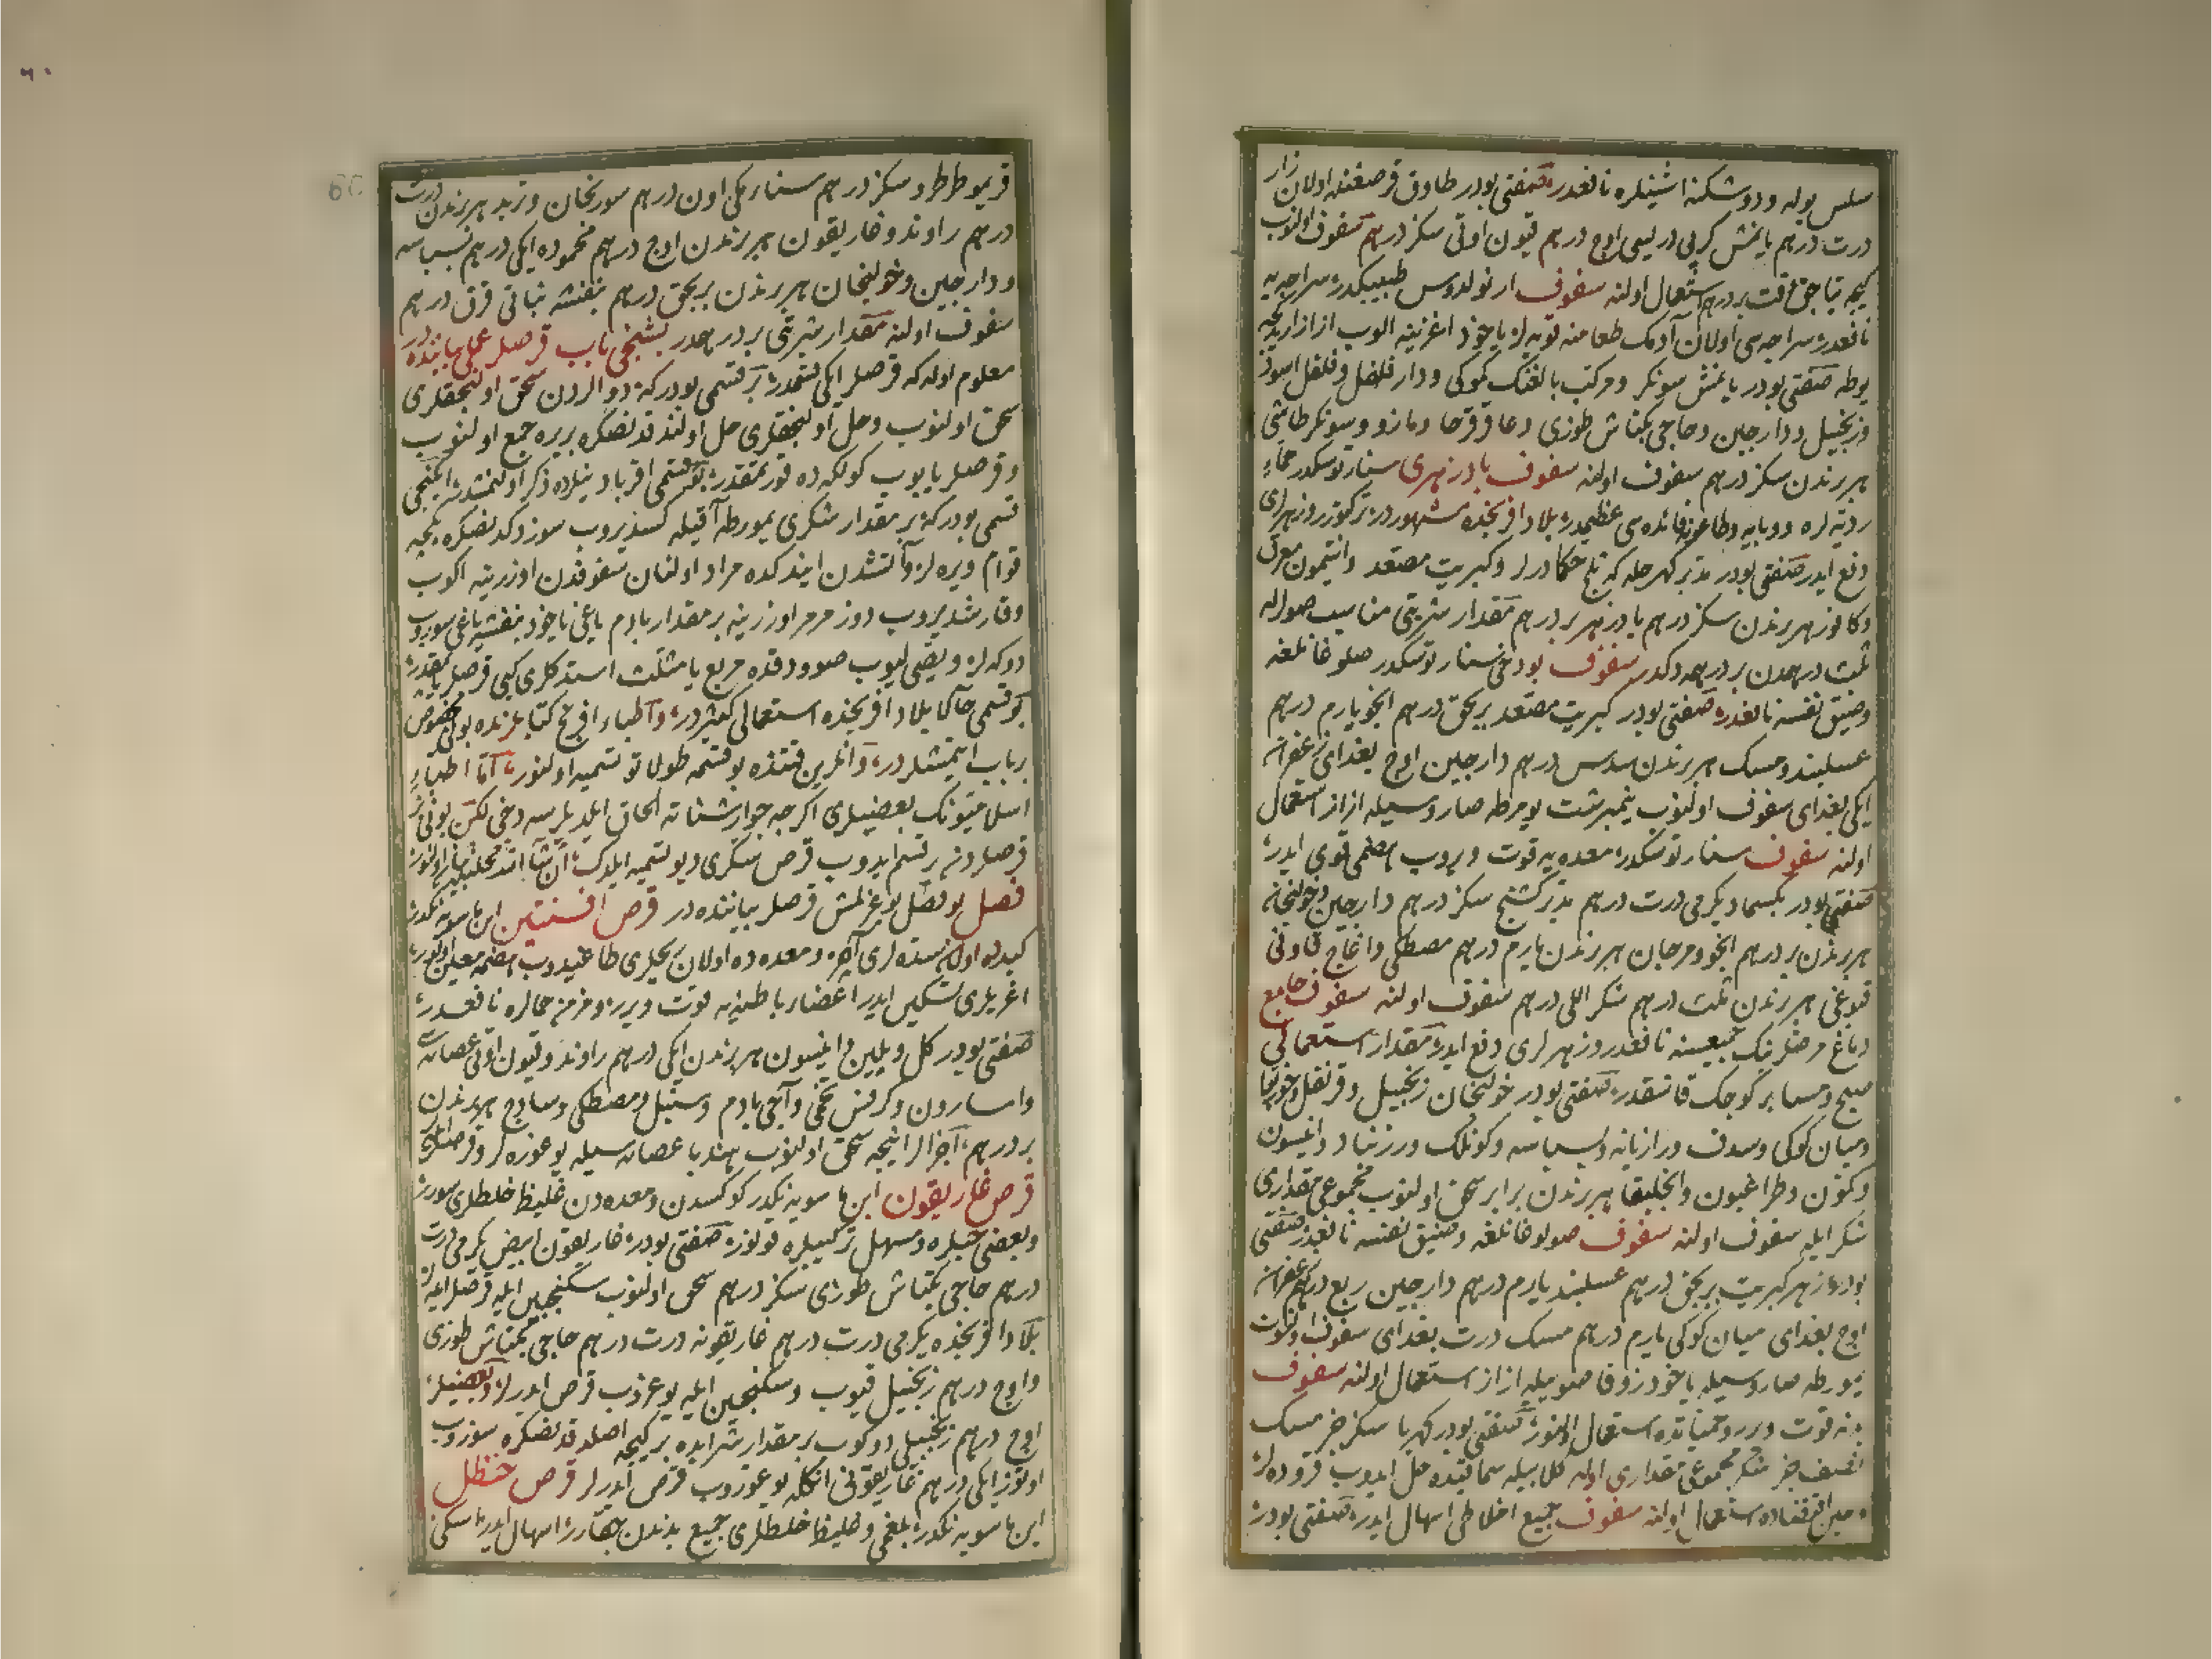 سلس بوله و دوشكنه اشينلره نافعدر صنعتى بودر طاوق قرصغنده اولان زار
درت درهم يانمش كرپى دريسى اوج درهم قيون اوتى سكز درهم سفوف اولنوب
كيجه ياتاجق وقت بر درهم استعمال اولنه سفوف ارنولدوس طبيبكدر سراجه يه
نافعدر سراجه سى اولان آدمك طعامنه قويه لر ياخود اغزينه الوب ازار ازار
يوطه صنعتى بودر يانمش سونكر ومركب بالغنك كموكى ودار فلفل وفلفل اسود
وزنجبيل ودارجين وحاجى بكتاش طوزى وعاقرقرحا ومازو وسونكر طاشى
هر برندن سكز درهم سفوف اولنه سفوف بادزهرى سنارتوسكدر حماء
رديه لره ووبايه وطاعونه فائده سى عظيمدر بلاد افرنجده مشهوردر تركتورر زهرلرى
دفع ايدر صنعتى بودر مدبر كهرجله كه تاج حكما درلر وكبريت مصعد وانتيمون معرق
وكانوزهر هر برندن سكز درهم بادزهر بر درهم مقدار شربتى مناسب صولرله
ثلث درهمدن بر درهمه دكدر سفوف بودخى سنارتوسكدر صولوغانلغه
وضيق نفسه نافعدر صنعتى بودر كبريت مصعد بر بجق درهم انجو يارم درهم
عسلبند ومسك هر برندن سدس درهم دارجين اوج بغداى زعفران
ايكى بغداى سفوف اولنوب نيمبرشت يومرطه صاروسيله ازار استعمال
اولنه سفوف سنارتوسكدر معده يه قوت ويروب هضمى قوى ايدر
صنعتى بودر بكسماد يكرمى درت درهم مدبر كشنيج سكز درهم دارجين وخولنجان
هر برندن بر درهم انجو ومرجان هر برندن يارم درهم مصطكى واغاج قاونى
قبوغى هر برندن ثلث درهم شكر اللى درهم سفوف اولنه سفوف جامع
دماغ مرضلرينك جميعسنه نافعدر وزهرلرى دفع ايدر مقدار استعمالى
صباح ومسا بر كوجك قاشقدر صنعتى بودر خولنجان زنجبيل وقرنفل وجوزبوا
وميان كوكى وسدف ورازيانه وبسباسه وكونلك وزرنباد وانيسون
وكمون وطراغيون وانجليقا هر برندن برابر سحق اولنوب مجموعى مقدارى
شكر ايله سفوف اولنه سفوف صولوغانلغه وضيق نفسه نافعدر صنعتى
بودر زهر كبريت بر بجق درهم عسلبند يارم درهم دارجين ربع درهم زعفران
اوج بغداى ميان كوكى يارم درهم مسك درت بغداى سفوف اولنوب
يمورطه صاروسيله ياخود زوفا صويله ازار استعمال اولنه سفوف
بدنه قوت ويرر وحمياتده استعمال اولنور صنعتى بودر كهربا سكز جزء مسك
نصف جزء شكر مجموعى مقدارى اوله كلابيله سماقيده حل ايدوب قروده لر
وحين اقتضاده استعمال اولنه سفوف جميع اخلاطى اسهال ايدر صنعتى بودر
قريموطرطر و سكز درهم سناء مكى اون درهم سورنجان وتربد هر برندن درت
درهم راوند وغاريقون هر برندن اوج درهم محموده ايكى درهم بسباسه
ودارجين وخولنجان هر برندن بر بجق درهم بنفشه نباتى قرق درهم
سفوف اولنه مقدار شربتى بر درهمدر بشنجى باب قرصلر عملى بياننده در
معلوم اوله كه قرصلر ايكى قسمدر بر قسمى بودر كه دوالردن سحق اولنجقلرى
سحق اولنوب وحل اولنجقلرى حل اولندقدنصكره بريره جمع اولنوب
وقرصلر ياپوب كولكه ده قورتمقدر بو قسمى اقرباديندلرده ذكر اولنمشدر ايكنجى
قسمى بودر كه بر مقدار شكرى يمورطه آقيله كسديروب سوزدكدنصكره بجه
قوام ويره لر وآتشدن ايندكده مراد اولنان سفوفدن اوزرينه اكوب
وقارشديروب دوز مرمر اوزرينه بر مقدار بادم ياغى ياخود بنفشه ياغى سوروب
دوكه لر ويصى ايوب صوودقده مربع يا مثلث استدكلرى كبى قرصلر ياپقدر
بو قسمى حالا بلاد افرنجده استعمالى كثيردر واطباء افرنج كتابلرنده بو مخصوص
باب ايتمشلردر وانلرين قتنده بو قسمه طولاتو تسميه اولنور اما اطباء
اسلاميونك بعضيلرى اكرجه جوارشناته الحاق ايلديلرسه دخى لكن بونى
قرصلردنه رسم ايدوب قرص سكرى ديو تسميه ايلدك ان شا الله محلنده بيان اولنور
فصل بو فصل يوغرلمش قرصلر بياننده در قرص افسنتين ابن ماسويه نكدر
كبدده اولان سده لرى آچر ومعده ده اولان ريحلرى طاغيدوب هضمه معين اولور
اغريلرى تسكين ايدر اعضاء باطنيه يه قوت ويرر ومزمن حمالره نافعدر
صنعتى بودر كل ويلبين وانيسون هر برندن ايكى درهم راوند وقيون اوتى عصاره سى
واسارون وكرفس تخمى وآجى بادم وسنبل ومصطكى وساذج هر برندن
بر درهم اجزالر اينجه سحق اولنوب هندبا عصاره سيله يوغوره لر وقرصلر ايليه لر
قرص غاريقون ابن ماسويه نكدر كوكسدن ومعده دن غليظ خلطلرى سورر
وبعضى حبلره ومسهل تركيبلره قونور صنعتى بودر غاريقون ابيض يكرمى درت
درهم حاجى بكتاش طوزى سكز درهم سحق اولنوب سكنجبين ايله قرصلر ايليه لر
بلاد افرنجده يكرمى درت درهم غاريقونه درت درهم حاجى بكتاش طوزى
واوج درهم زنجبيل قيوب وسكنجبين ايله يوغروب قرص ايدرلر وبعضيلر
اوج درهم زنجبيلى دوكوب بر مقدار شرابده بر كيجه اصلدقدنصكره سوزوب
اوتوز ايكى درهم غاريقونى انكله يوغوروب قرص ايدرلر قرص حنظل
ابن ماسويه نكدر بلغمى وغليظ خلطلرى جميع بدندن چقارر اسهال ايدر اسكى